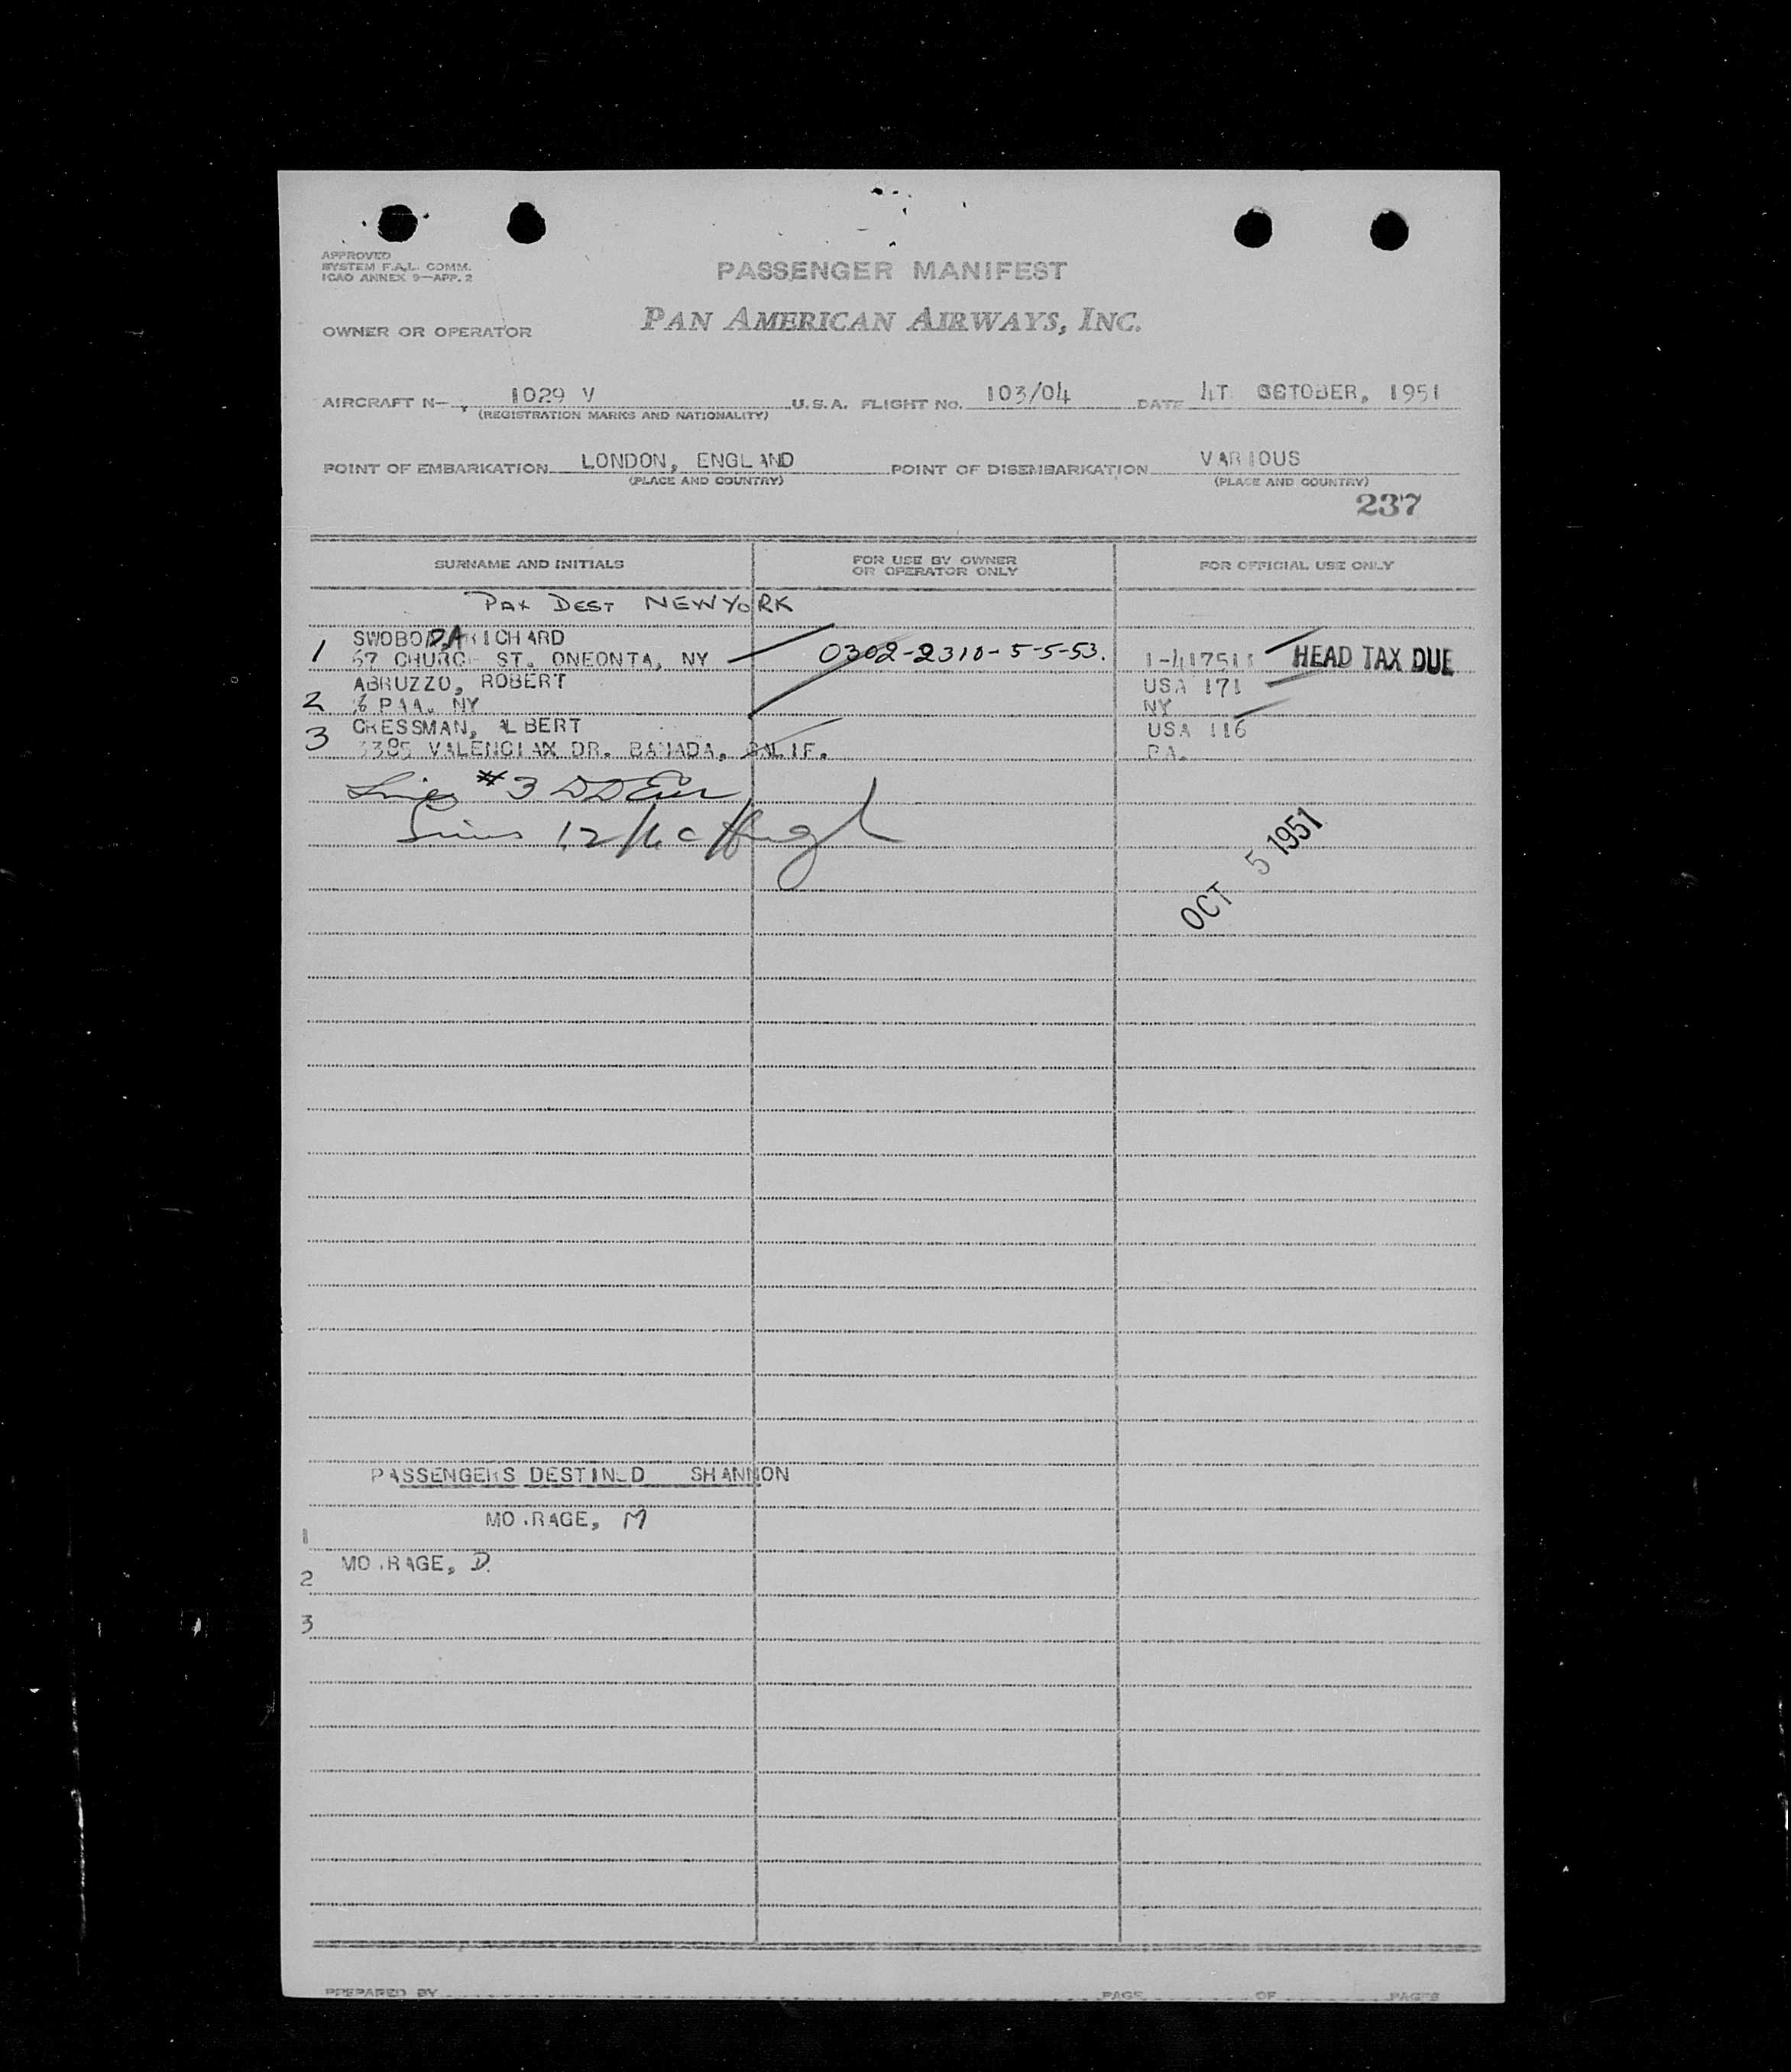 APPROVED
SYSTEM F.A.L. COMM.
ICAO ANNEX 9—APP. 2
PASSENGER MANIFEST
OWNER OR OPERATOR
PAN AMERICAN AIRWAYS, INC.
AIRCRAFT N— 1029 V U.S.A. FLIGHT No. 103/04 DATE 4T OCTOBER, 1951
(REGISTRATION MARKS AND NATIONALITY)
POINT OF EMBARKATION LONDON, ENGLAND POINT OF DISEMBARKATION VARIOUS
(PLACE AND COUNTRY) (PLACE AND COUNTRY)
237
SURNAME AND INITIALS FOR USE BY OWNER OR OPERATOR ONLY FOR OFFICIAL USE ONLY
PAX DEST NEWYORK
1 SWOBODA RICHARD
67 CHURCH ST. ONEONTA, NY 0302-2310-5-5-53. HEAD TAX DUE
ABRUZZO, ROBERT USA 171
2 % PAA. NY NY
CRESSMAN, ALBERT USA 116
3 3385 VALENCIAX DR. CALIF. PA.
Line #3
Lines 1,2
OCT 5 1951
PASSENGERS DESTINED SHANNON
MO.RAGE, M
1
MO.RAGE, D.
2
3
PREPARED BY PAGE OF PAGES